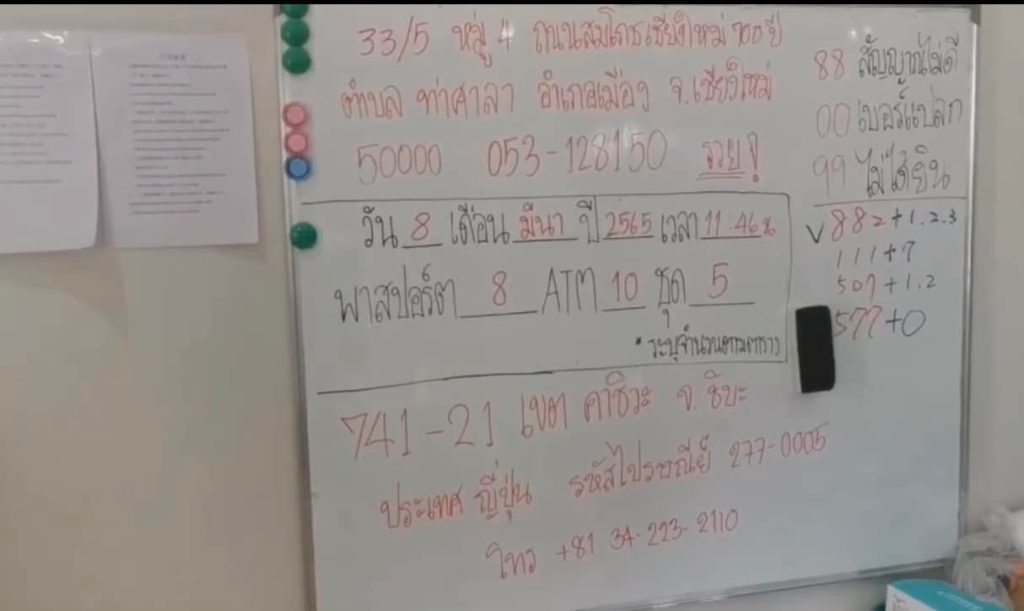 33/5 หมู่ 4 ถนนสมโภชเชียงใหม่ 700 ปี
ตำบล ท่าศาลา อำเภอเมือง จ.เชียงใหม่
50000 053-128150
วัน 8 เดือน มีนา ปี 2565 เวลา 11.46 น
พาสปอร์ต 8 ATM 10 ชุด 5
* ระบุจำนวนตามตาราง
741-21 เขต คาชิวะ จ. ชิบะ
ประเทศ ญี่ปุ่น รหัสไปรษณีย์ 277-0005
โทร +81 34-223-2110
88 สัญญาณไม่ดี
00 เบอร์แปลก
99 ไม่ได้ยิน
882+1.2.3
111+7
507+1.2
577+0